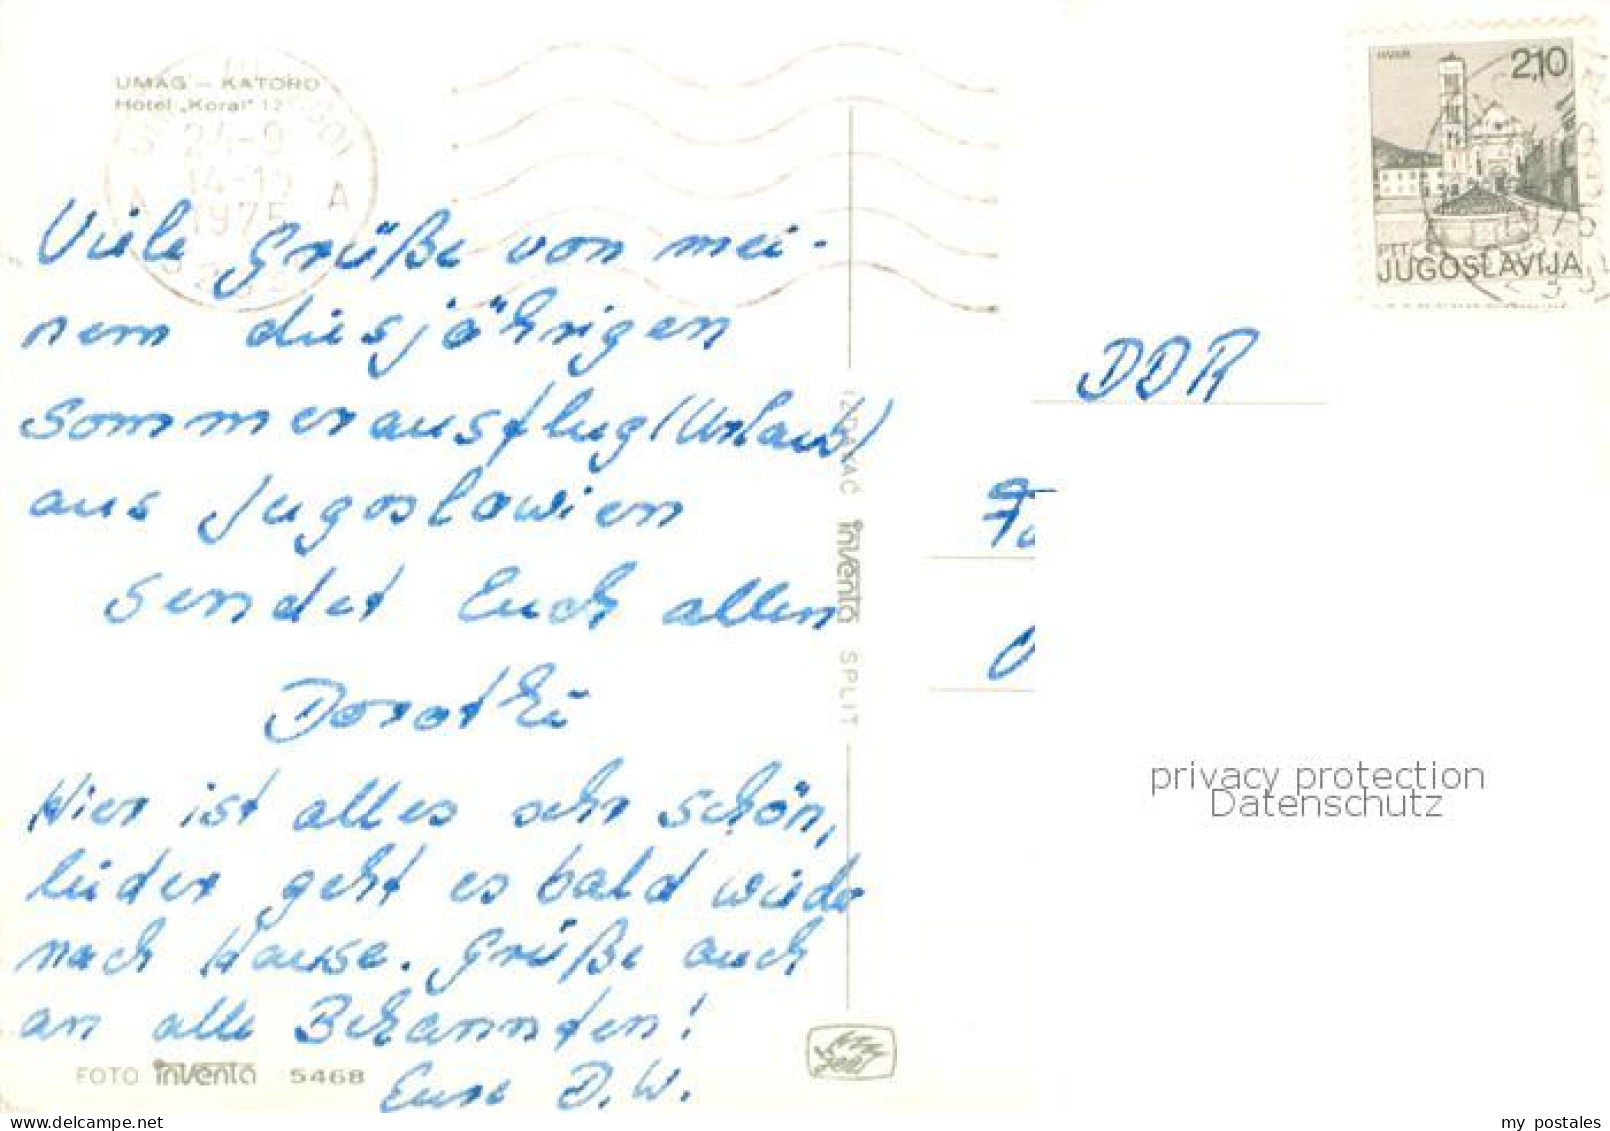 UMAG – KATORO
Hotel „Koral" 12
24-9
14-15
1975
A
A
HVAR
2,10
PTT
JUGOSLAVIJA
Viele Grüße von mei-
nem diesjährigen
Sommerausflug (Urlaub)
aus Jugoslawien
sendet Euch allen
Dorothü
Hier ist alles sehr schön,
leider geht es bald wieder
nach Hause. Grüße auch
an alle Bekannten!
Eure D.W.
FOTO inventa 5468
IZDAVAČ inventa SPLIT
DDR
privacy protection
Datenschutz
my postales